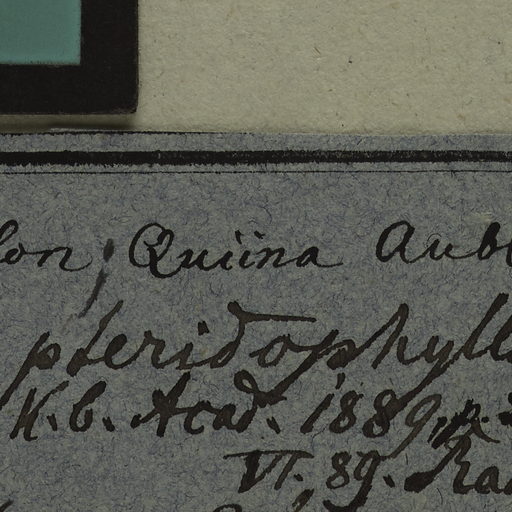 Quiina Aubl
pteridophyll
K. b. Acad. 1889, p.
VI. 89. Rad